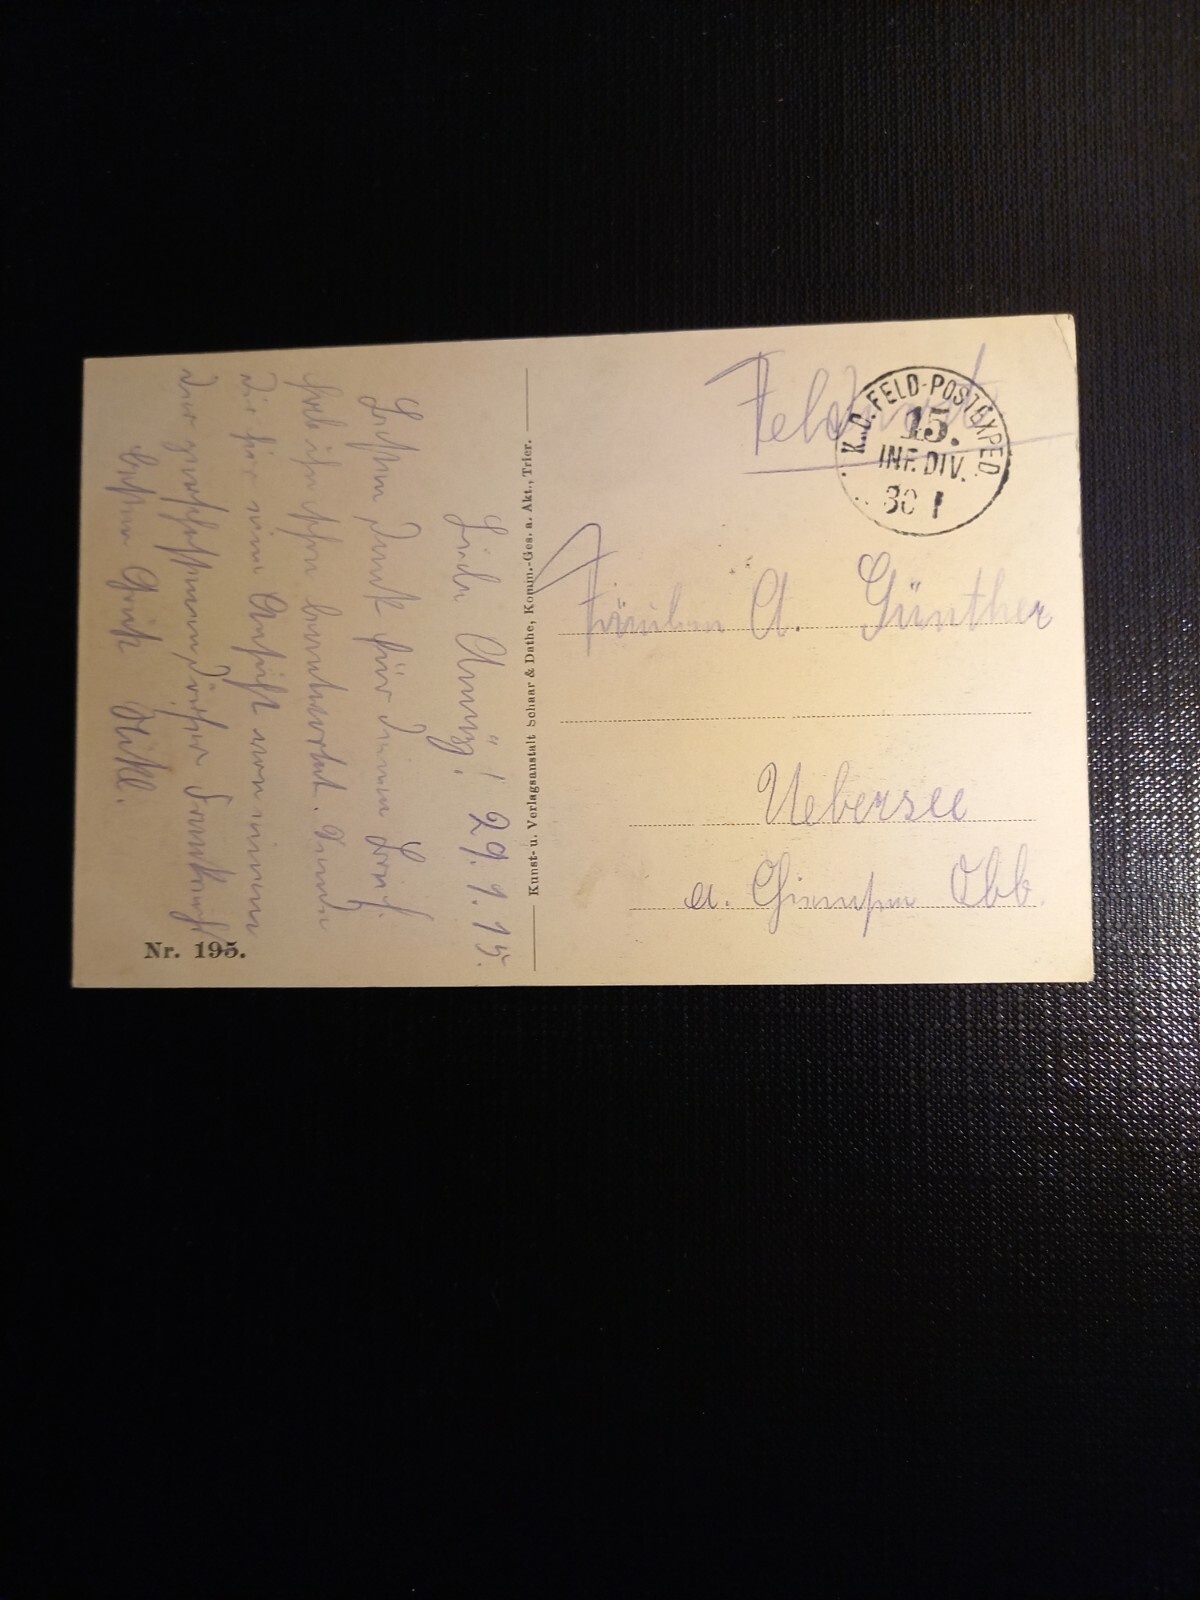 Liebe Anny! 29.1.15.
Besten Dank für Deinen Brief.
Hab ihn schon beantwortet. Sende
Dir hier eine Ansicht von einem
der zerschossenen Dörfer Frankreichs
besten Gruß
Nr. 195.
Kunst- u. Verlagsanstalt Schaar & Dathe, Komm.-Ges. a. Akt., Trier.
Feldpost
K.D. FELD-POSTEXPED.
15.
INF. DIV.
30 1
Fräulein A. Günther
Uebersee
a. Chiemsee Obb.